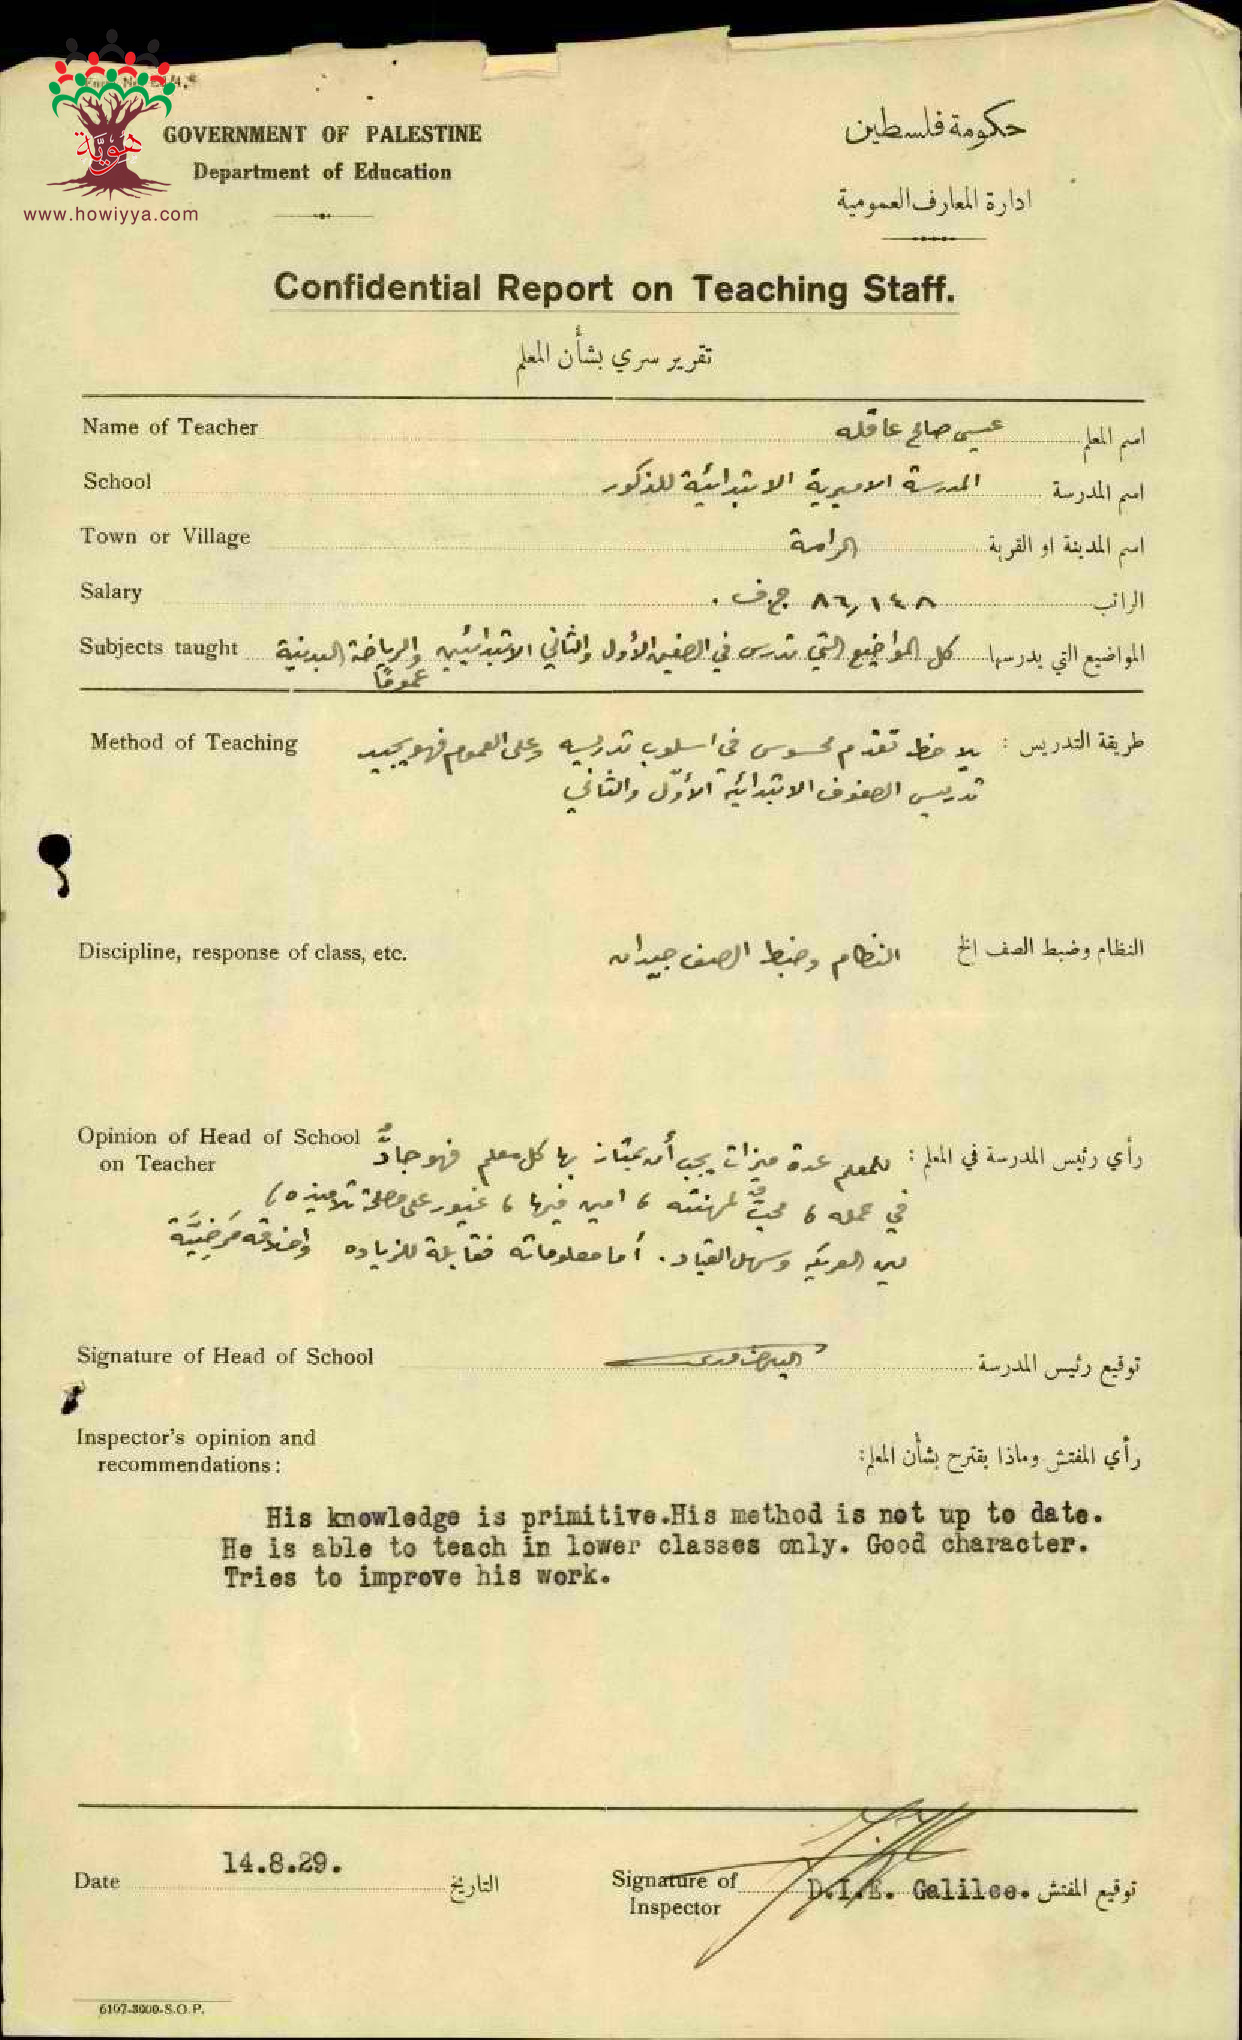 هويّة
www.howiyya.com
GOVERNMENT OF PALESTINE
Department of Education
حكومة فلسطين
ادارة المعارف العمومية
Confidential Report on Teaching Staff.
تقرير سري بشأن المعلم
Name of Teacher عيسى صالح عاقله اسم المعلم
School المدرسة الاميرية الابتدائية للذكور اسم المدرسة
Town or Village الرامة اسم المدينة او القرية
Salary ٨٦,١٤٨ ج.ف. الراتب
Subjects taught كل المواضيع التي تدرس في الصفين الأول والثاني الابتدائيين والرياضة البدنية المواضيع التي يدرسها
عمومًا
Method of Teaching يلاحظ تقدم محسوس في اسلوب تدريسه وعلى العموم فهو يجيد طريقة التدريس :
تدريس الصفوف الابتدائية الأوّل والثاني
Discipline, response of class, etc. النظام وضبط الصف جيدان النظام وضبط الصف الخ
Opinion of Head of School
on Teacher
رأي رئيس المدرسة في المعلم : للمعلم عدة ميزات يجب أن يمتاز بها كل معلم فهو جادٌّ
في عمله ، محبٌّ لمهنته ، امين فيها ، غيور على مصلحة تلاميذه ،
لين العريكه وسهل القياد . أما معلوماته فقابلة للزياده واخلاقه مَرضِيَّة
Signature of Head of School توقيع رئيس المدرسة
Inspector's opinion and
recommendations:
رأي المفتش وماذا يقترح بشأن المعلم:
His knowledge is primitive.His method is not up to date.
He is able to teach in lower classes only. Good character.
Tries to improve his work.
Date 14.8.29. التاريخ
Signature of
Inspector
D.I.E. Galilee. توقيع المفتش
6107-3000-S.O.P.